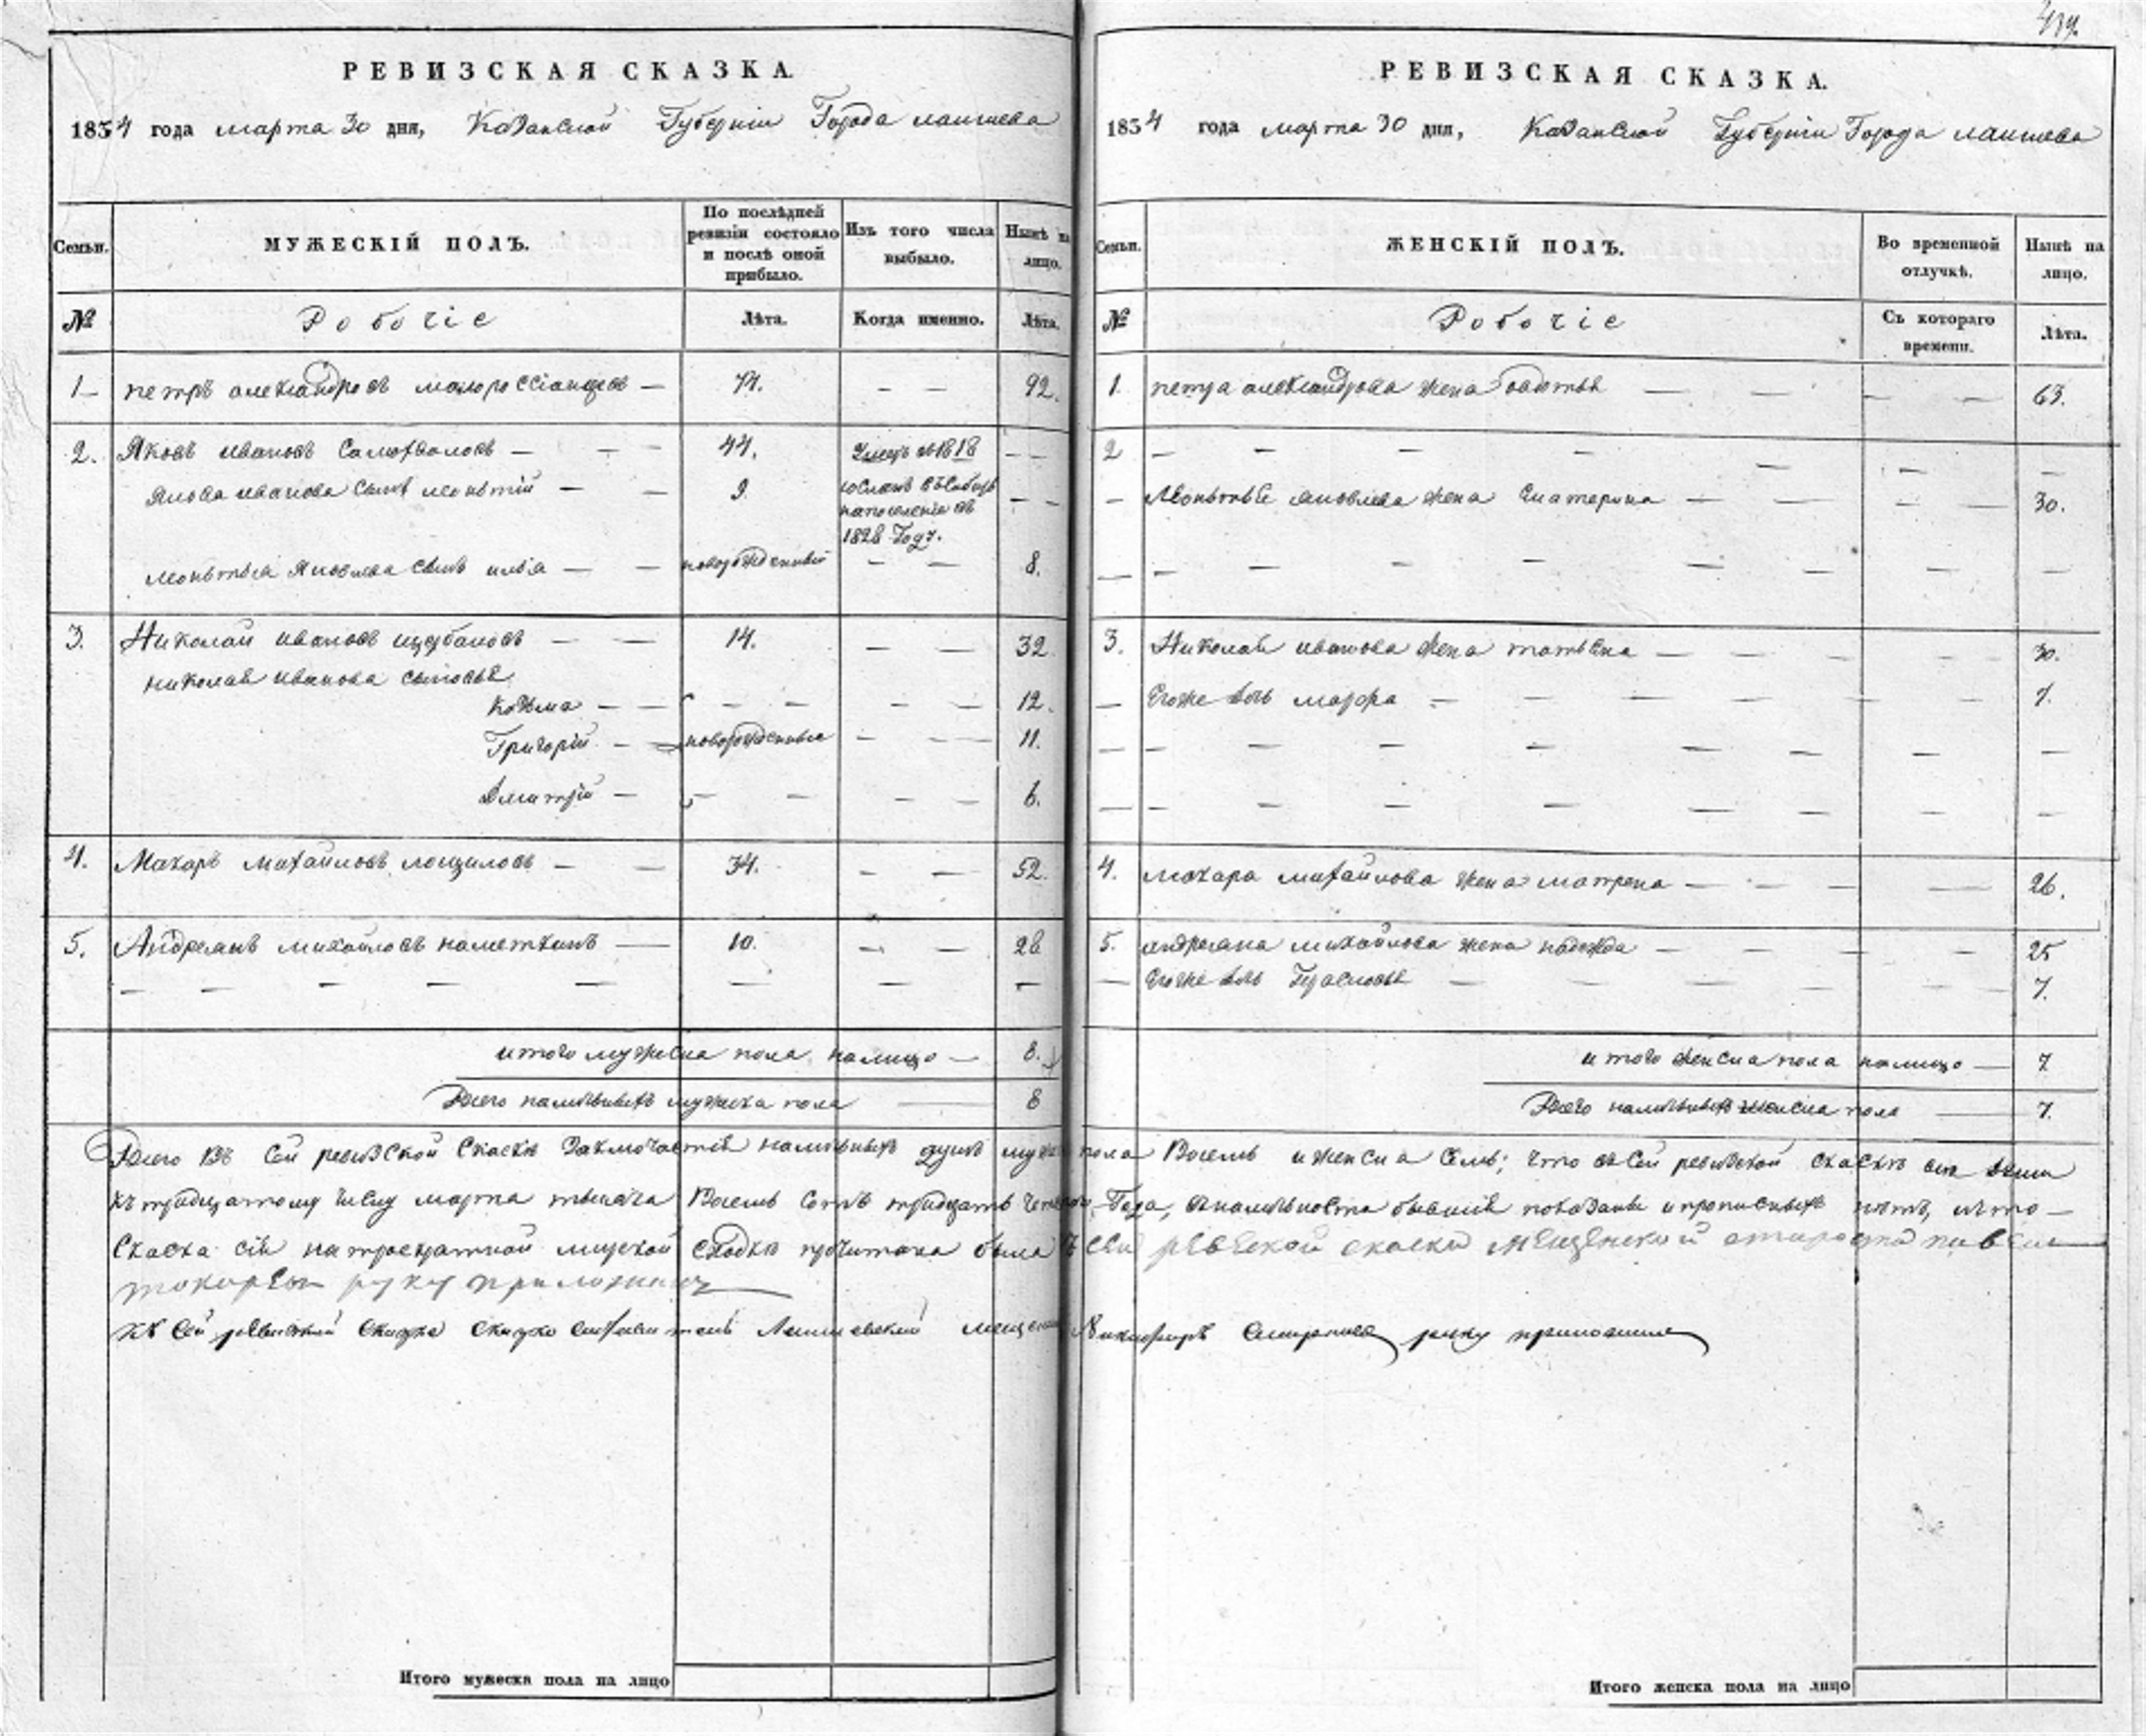 439.
РЕВИЗСКАЯ СКАЗКА.
1834 года марта 30 дня, Казанской Губерніи Города Лаишева
Семьи.
МУЖЕСКІЙ ПОЛЪ.
По послѣдней ревизіи состояло и послѣ оной прибыло.
Изъ того числа выбыло.
Нынѣ на лицо.
№
Робочіе
Лѣта.
Когда именно.
Лѣта.
1 петръ александровъ малороссіанцовъ — 74. — — 92.
2. Яковъ ивановъ Самохваловъ — — — 44. Умеръ въ 1818 — —
Якова иванова сынъ леонътій — — 9. сосланъ въ Сибирь на поселеніе въ 1828 Году. — —
леонътья Яковлева сынъ илья — — новорожденный — — 8.
3. Николай ивановъ щербаковъ — — 14. — — 32
николая иванова сыновья
Козма — — — — — — 12.
Григорій — новорожденные — — 11.
Дмитрій — — — — — 6.
4. Макаръ михайловъ лощиловъ — — 34. — — 52.
5. Андреянъ михайловъ наметкинъ — 10. — — 28
— — — — — — — —
итого мужеска пола налицо — 8.
Всего наличныхъ мужеска пола — 8
РЕВИЗСКАЯ СКАЗКА.
1834 года марта 30 дня, Казанской Губерніи Города лаишева
Семьи.
ЖЕНСКІЙ ПОЛЪ.
Во временной отлучкѣ.
Нынѣ на лицо.
№
Робочіе
Съ котораго времени.
Лѣта.
1. петра александрова жена авдотья — — — — — 63.
2 — — — — — — — —
— леонтья яковлева жена Екатерина — — — — 30.
— — — — — — — — —
3. Николая иванова жена татьяна — — — — — 30.
— Егоже дочь марфа — — — — — — 7.
— — — — — — — — —
— — — — — — — — —
4. макара михайлова жена матрена — — — — 26.
5. андреяна михайлова жена надежда — — — — 25
— Егоже дочь — — — — — 7.
итого женска пола налицо — 7
Всего наличныхъ женска пола — 7.
Всего въ Сей ревизской Скаскѣ Заключается наличныхъ душъ мужеска пола Восемь и женска Семь; что въ сей ревизской скаскѣ все
къ тридцатому числу марта тысяча Восемь Сотъ тридцать четвертаго Года, бывшія показаны и прописныхъ нѣтъ, и что —
Скаска сія мирской сходкѣ прочитана была Къ сеи ревеской скаски мещенской староста павел
токорев руку приложил
Къ Сей ревизской Лаишевский мещанин Никифоръ Смирнов руку приложилъ
Итого мужеска пола на лицо
Итого женска пола на лицо